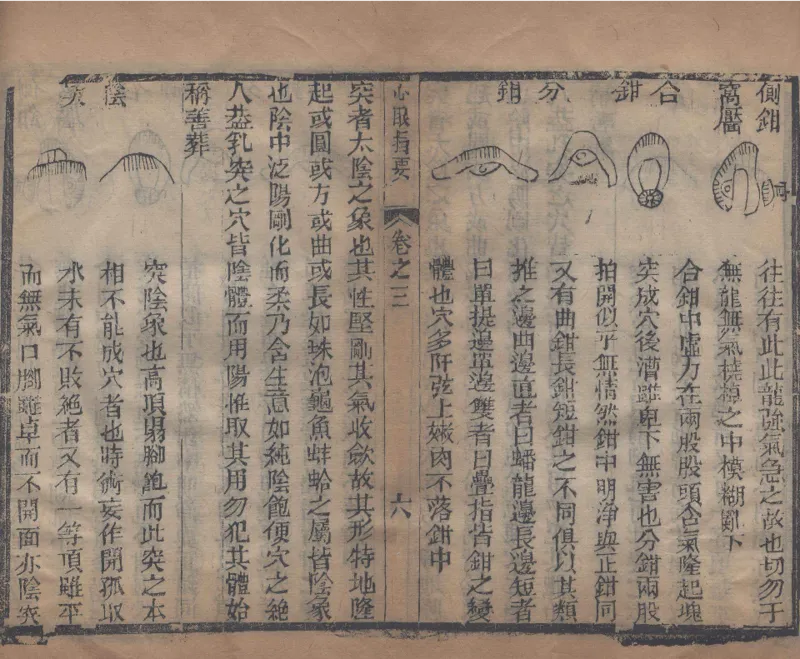 側鉗
窩靨
合鉗
分鉗
往往有此此龍強氣急之故也切勿于
無龍無氣模糊之中模糊亂下
合鉗中虛力在兩股股頭含氣隆起塊
突成穴後漕雖卑下無害也分鉗兩股
拍開似乎無情然鉗中明淨與正鉗同
又有曲鉗長鉗短鉗之不同俱以其類
推之邊曲邊直者曰蟠龍邊長邊短者
曰單提邊單邊雙者曰疊指皆鉗之變
體也穴多阡弦上嫩肉不落鉗中
心眼指要
卷之三
六
突者太陰之象也其性堅剛其氣收歛故其形特地隆
起或圓或方或曲或長如珠泡龜魚蚌蛤之屬皆陰象
也陰中泛陽剛化而柔乃含生意如純陰飽便穴之絶
人葢乳突之穴皆陰體而用陽惟取其用勿犯其體始
稱善葬
陰突
突陰象也高項揚腳飽而此突之本
相不能成穴者也時術妄作開孤取
水未有不敗絕者又有一等項雖平
而無氣口腳雖卓而不開面亦陰突